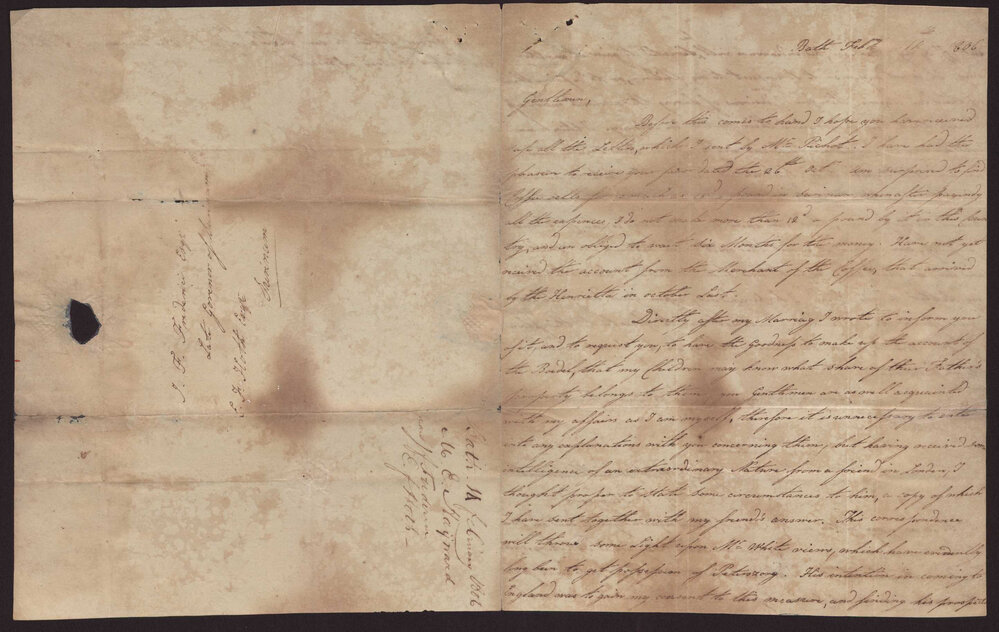 J. F. Frederici Esqr
Late Governor of Surinam
& J. Horth Esqr
Surinam
Bath 11 February 1806
M. E. Maynard
Bath Feb. 11th 1806
Gentlemen,
Before this comes to hand I hope you have received
safe all the Letters, which I sent by Mr. Pichot. I have had the
pleasure to receive your favor dated the 26th Oct. am surprised to find
Coffee sells for pound in Surinam when after paying
all the expences, I do not make more than 12d a pound by it in this Coun-
try, and am obliged to wait Six Months for the money. Have not yet
received the account from the Merchant of the Coffee, that arrived
by the Henrietta in october Last.
Directly after my Marriage I wrote to inform you
of it, and to request you, to have the Goodness to make up the account of
the Boedel, that my Children may know what share of their Father's
property belongs to them you Gentlemen are as well acquainted
with my affairs as I am myself, therefore it is unnecessary to enter
into any explanations with you concerning them, but having received some
intelligence of an extraordinary Nature from a friend in London, I
thought proper to state some circumstances to him, a copy of which
I have sent together with my friend's answer. This correspondence
will throw some Light upon Mr. White views, which have evidently
long been to get possession of Peterszorg. His intention in coming to
England was to gain my consent to this measure, and finding his prospects